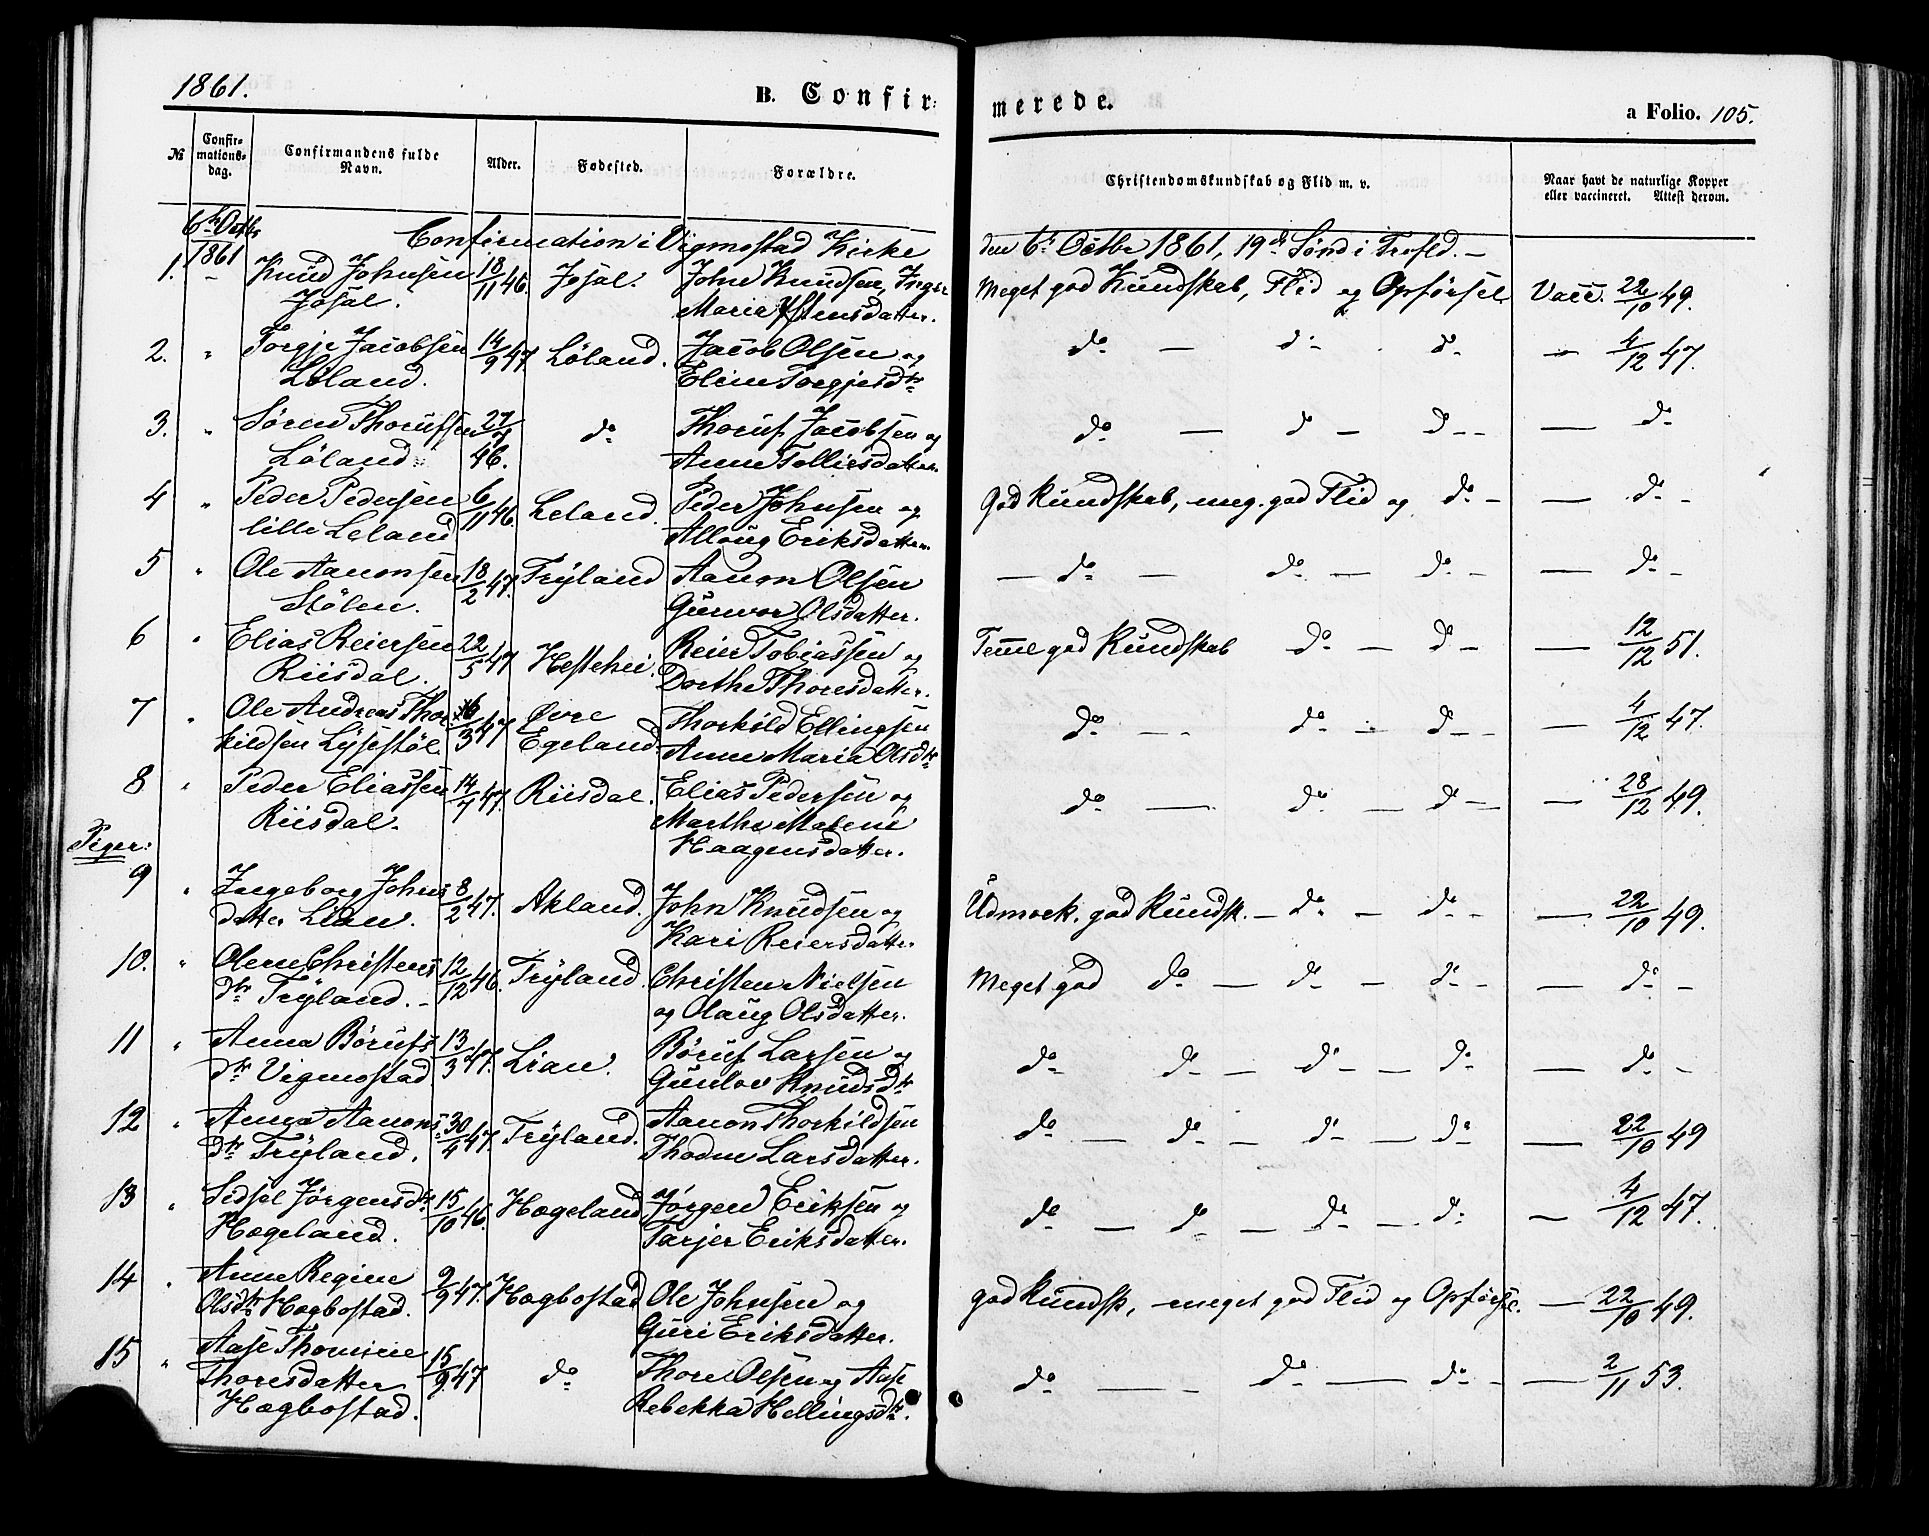 1861.
B. Confir=
merede.
a Folio. 105.
№
Confir=
mations=
dag.
Confirmandens fulde
Navn.
Alder.
Fødested.
Forældre.
Christendomskundskab og Flid m. v.
Naar havt de naturlige Kopper
eller vaccineret. Attest derom.
1861
Confirmation i Vigmostad Kirke
den 6te Octbr 1861, 19de Sønd i Trefld. —
1. – Knud Johnsen 18/11 46. Josal. John Knudsen, Inger Meget god Kundskab, Flid og Opførsel Vacc. 22/10 49.
Josal. Maria
2. " Torgje Jacobsen 14/9 47 Löland. Jacob Olsen og do — do . do — 4/12 47.
Löland. Eline Torgjesdtr
3. " Sören Thorufsen 27/ Thoruf Jacobsen og
do do — do — do — — do
Löland 46. Anne Tolliesdatter
4 " Peder Pedersen 6/11 46. Leland. Peder Johnsen og God Kundskab, meg. god Flid og do – — do –
lille Leland Allaug Eriksdatter.
5 " Ole Aanonsen 18/2 47. Trÿland Aanon Olsen — do — do — do – — do –
Stölen. Gunvor Olsdatter.
6 " Elias Reiersen 22/5 47 Hestehei. Reier Tobiassen og Temel god Kundskab do — do – — 12/12 51.
Riisdal. Dorthe Thoresdatter.
7 " Ole Andreas Thor= 6/3 47 Øvre Thorkild Ellingsen do — do — do – — 4/12 47.
kildsen Lÿsestöl Egeland. Anne Maria Olsdtr
8 " Peder Eliassen 14/7 47. Riisdal. Elias Pedersen og do — do — do — — 28/12 49.
Riisdal. Marthe Malene
Haagensdatter.
Piger:
9 " Ingeborg Johns 8/2 47. Akland. John Knudsen og Udmærk. god Kundsk. — do — do – — 22/10 49.
datter Lian. Kari Reiersdatter
10. " Olene Christens 12/12 46. Trÿland. Christen Nielsen Meget god do — do — do – — do –
dtr Trÿland. – og Olaug Olsdatter.
11 " Anna Börufs 13/3 47. Lian. Böruf Larsen og do do — do — do — do –
dtr Vigmostad Gunlov Knudsdtr
12 " Anna Aanons 30/4 47. Trÿland. Aanon Thorkildsen do — do — do — do — 22/10 49
dtr Trÿland. Thodne Larsdatter.
13 " Sidsel Jörgensdtr 15/10 46. Hægeland Jörgen Eriksen og do — do — do — do — 4/12 47.
Hægeland. Tarjer Eriksdatter.
14 " Anne Regine 9/9 47. Hægbostad Ole Johnsen og god Kundsk, meget god Flid og Opførsel. — 22/10 49.
Olsdtr Hægbostad. Guri Eriksdatter.
15 " Aase Thomine 15/9 47 do Thore Olsen og Aase do — — do — do – — 2/11 53.
Thoresdatter Rebekka Hellingsdtr.
Hægbostad.